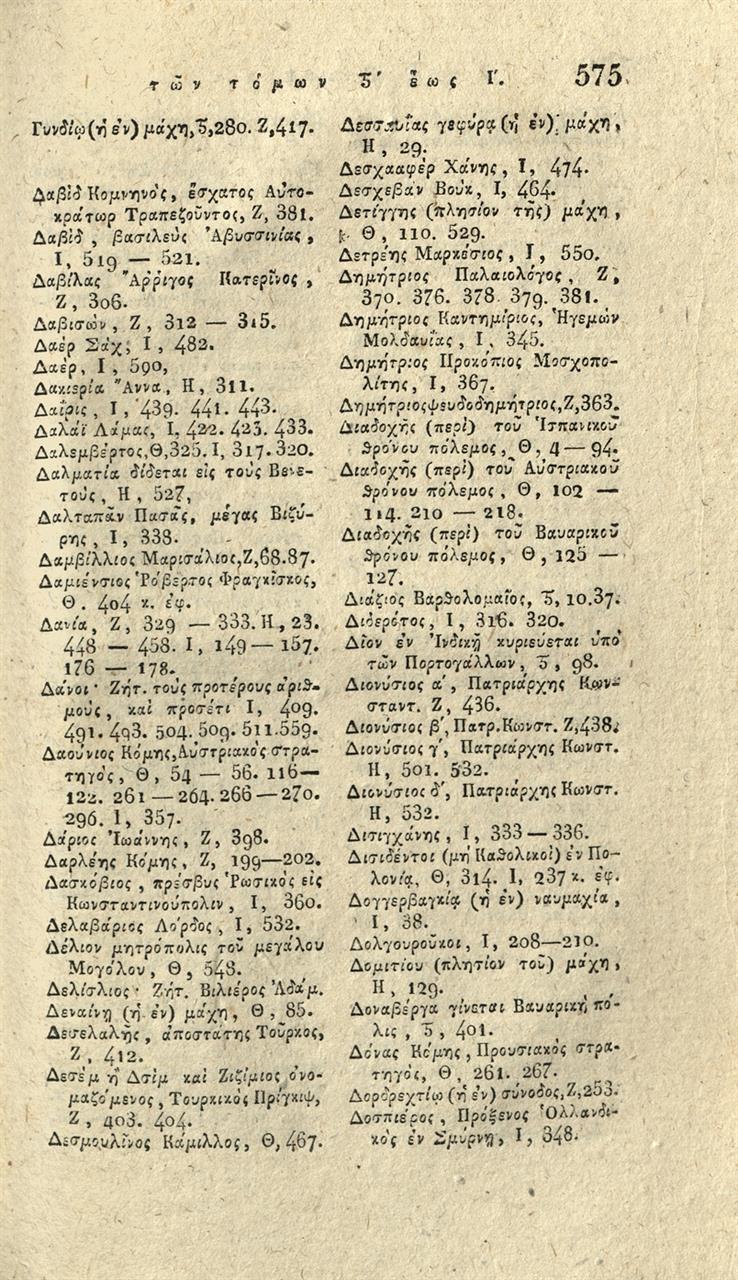 τῶν τόμων Ϛ΄ ἕως Ι΄. 575
Γυνδίῳ (ἡ ἐν) μάχη, Ϛ, 280. Ζ, 417.
Δαβὶδ Κομνηνὸς, ἔσχατος Αὐτο-
κράτωρ Τραπεζοῦντος, Ζ, 381.
Δαβὶδ, βασιλεὺς Ἀβυσσινίας,
Ι, 519 — 521.
Δαβίλας Ἄρριγος Κατερῖνος,
Ζ, 306.
Δαβισὼν, Ζ, 312 — 315.
Δαὲρ Σάχ, Ι, 482.
Δαὲρ, Ι, 590,
Δακιερία Ἄννα, Η, 311.
Δαΐρις, Ι, 439. 441. 443.
Δαλαῒ Λάμας, Ι, 422. 423. 433.
Δαλεμβέρτος, Θ, 325. Ι, 317. 320.
Δαλματία δίδεται εἰς τοὺς Βενε-
τοὺς, Η, 527,
Δαλταπὰν Πασᾶς, μέγας Βιζύ-
ρης, Ι, 338.
Δαμβίλλιος Μαρισάλιος, Ζ, 68. 87.
Δαμιένσιος Ῥόβερτος Φραγκῖσκος,
Θ. 404 κ. ἐφ.
Δανία, Ζ, 329 — 333. Η, 23.
448 — 458. Ι, 149 — 157.
176 — 178.
Δάνοι· Ζήτ. τοὺς προτέρους ἀριθ-
μοὺς, καὶ προσέτι Ι, 409.
491. 493. 504. 509. 511. 559.
Δαούνιος Κόμης, Αὐστριακὸς στρα-
τηγὸς, Θ, 54 — 56. 116 —
122. 261 — 264. 266 — 270.
296. Ι, 357.
Δάριος Ἰωάννης, Ζ, 398.
Δαρλέης Κόμης, Ζ, 199—202.
Δασκόβιος, πρέσβυς Ῥωσικὸς εἰς
Κωνσταντινούπολιν, Ι, 360.
Δελαβάριος Λόρδος, Ι, 532.
Δέλιον μητρόπολις τοῦ μεγάλου
Μογόλου, Θ, 548.
Δελίσλιος· Ζήτ. Βιλιέρος Ἀδάμ.
Δεναίνῃ (ἡ ἐν) μάχη, Θ, 85.
Δεσελαλῆς, ἀποστάτης Τοῦρκος,
Ζ, 412.
Δεσὲμ ἢ Δσὶμ καὶ Ζιζίμιος ὀνο-
μαζόμενος, Τουρκικὸς Πρίγκιψ,
Ζ, 403. 404.
Δεσμουλῖνος Κάμιλλος, Θ, 467.
γεφύρᾳ (ἡ ἐν) μάχη,
Η, 29.
Δεσχααφὲρ Χάνης, Ι, 474.
Δεσχεβὰν Βοὺκ, Ι, 464.
Δετίγγης (πλησίον τῆς) μάχη,
Θ, 110. 529.
Δετρέης Μαρκέσιος, Ι, 550.
Δημήτριος Παλαιολόγος, Ζ,
370. 376. 378. 379. 381.
Δημήτριος Καντημίριος, Ἡγεμὼν
Μολδαυΐας, Ι, 345.
Δημήτριος Προκόπιος Μοσχοπο-
λίτης, Ι, 367.
Δημήτριος ψευδοδημήτριος, Ζ, 363.
Διαδοχῆς (περὶ) τοῦ Ἱσπανικοῦ
θρόνου πόλεμος, Θ, 4 — 94.
Διαδοχῆς (περὶ) τοῦ Αὐστριακοῦ
θρόνου πόλεμος, Θ, 102 —
114. 210 — 218.
Διαδοχῆς (περὶ) τοῦ Βαυαρικοῦ
θρόνου πόλεμος, Θ, 125 —
127.
Διάζιος Βαρθολομαῖος, Ϛ, 10. 37.
Διδερότος, Ι, 316. 320.
Δῖον ἐν Ἰνδικῇ κυριεύεται ὑπὸ
τῶν Πορτογάλλων, Ϛ, 98.
Διονύσιος α΄, Πατριάρχης Κων-
σταντ. Ζ, 436.
Διονύσιος β΄, Πατρ. Κωνστ. Ζ, 438.
Διονύσιος γ΄, Πατριάρχης Κωνστ.
Η, 501. 532.
Διονύσιος δ΄, Πατριάρχης Κωνστ.
Η, 532.
Δισιγχάνης, Ι, 333 — 336.
Δισιδέντοι (μὴ Καθολικοὶ) ἐν Πο-
λονίᾳ, Θ, 314. Ι, 237 κ. ἐφ.
Δογγερβαγκίᾳ (ἡ ἐν) ναυμαχία,
Ι, 38.
Δολγουροῦκοι, Ι, 208—210.
Δομιτίου (πλησίον τοῦ) μάχη,
Η, 129.
Δοναβέργα γίνεται Βαυαρικὴ πό-
λις, Ϛ, 401.
Δόνας Κόμης, Προυσιακὸς στρα-
τηγὸς, Θ, 261. 267.
Δορδρεχτίῳ (ἡ ἐν) σύνοδος, Ζ, 253.
Δοσπιέρος, Πρόξενος Ὁλλανδι-
κὸς ἐν Σμύρνῃ, Ι, 348.